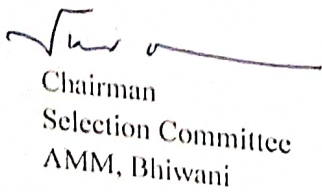 Chairman
Selection Committee
AMM, Bhiwani